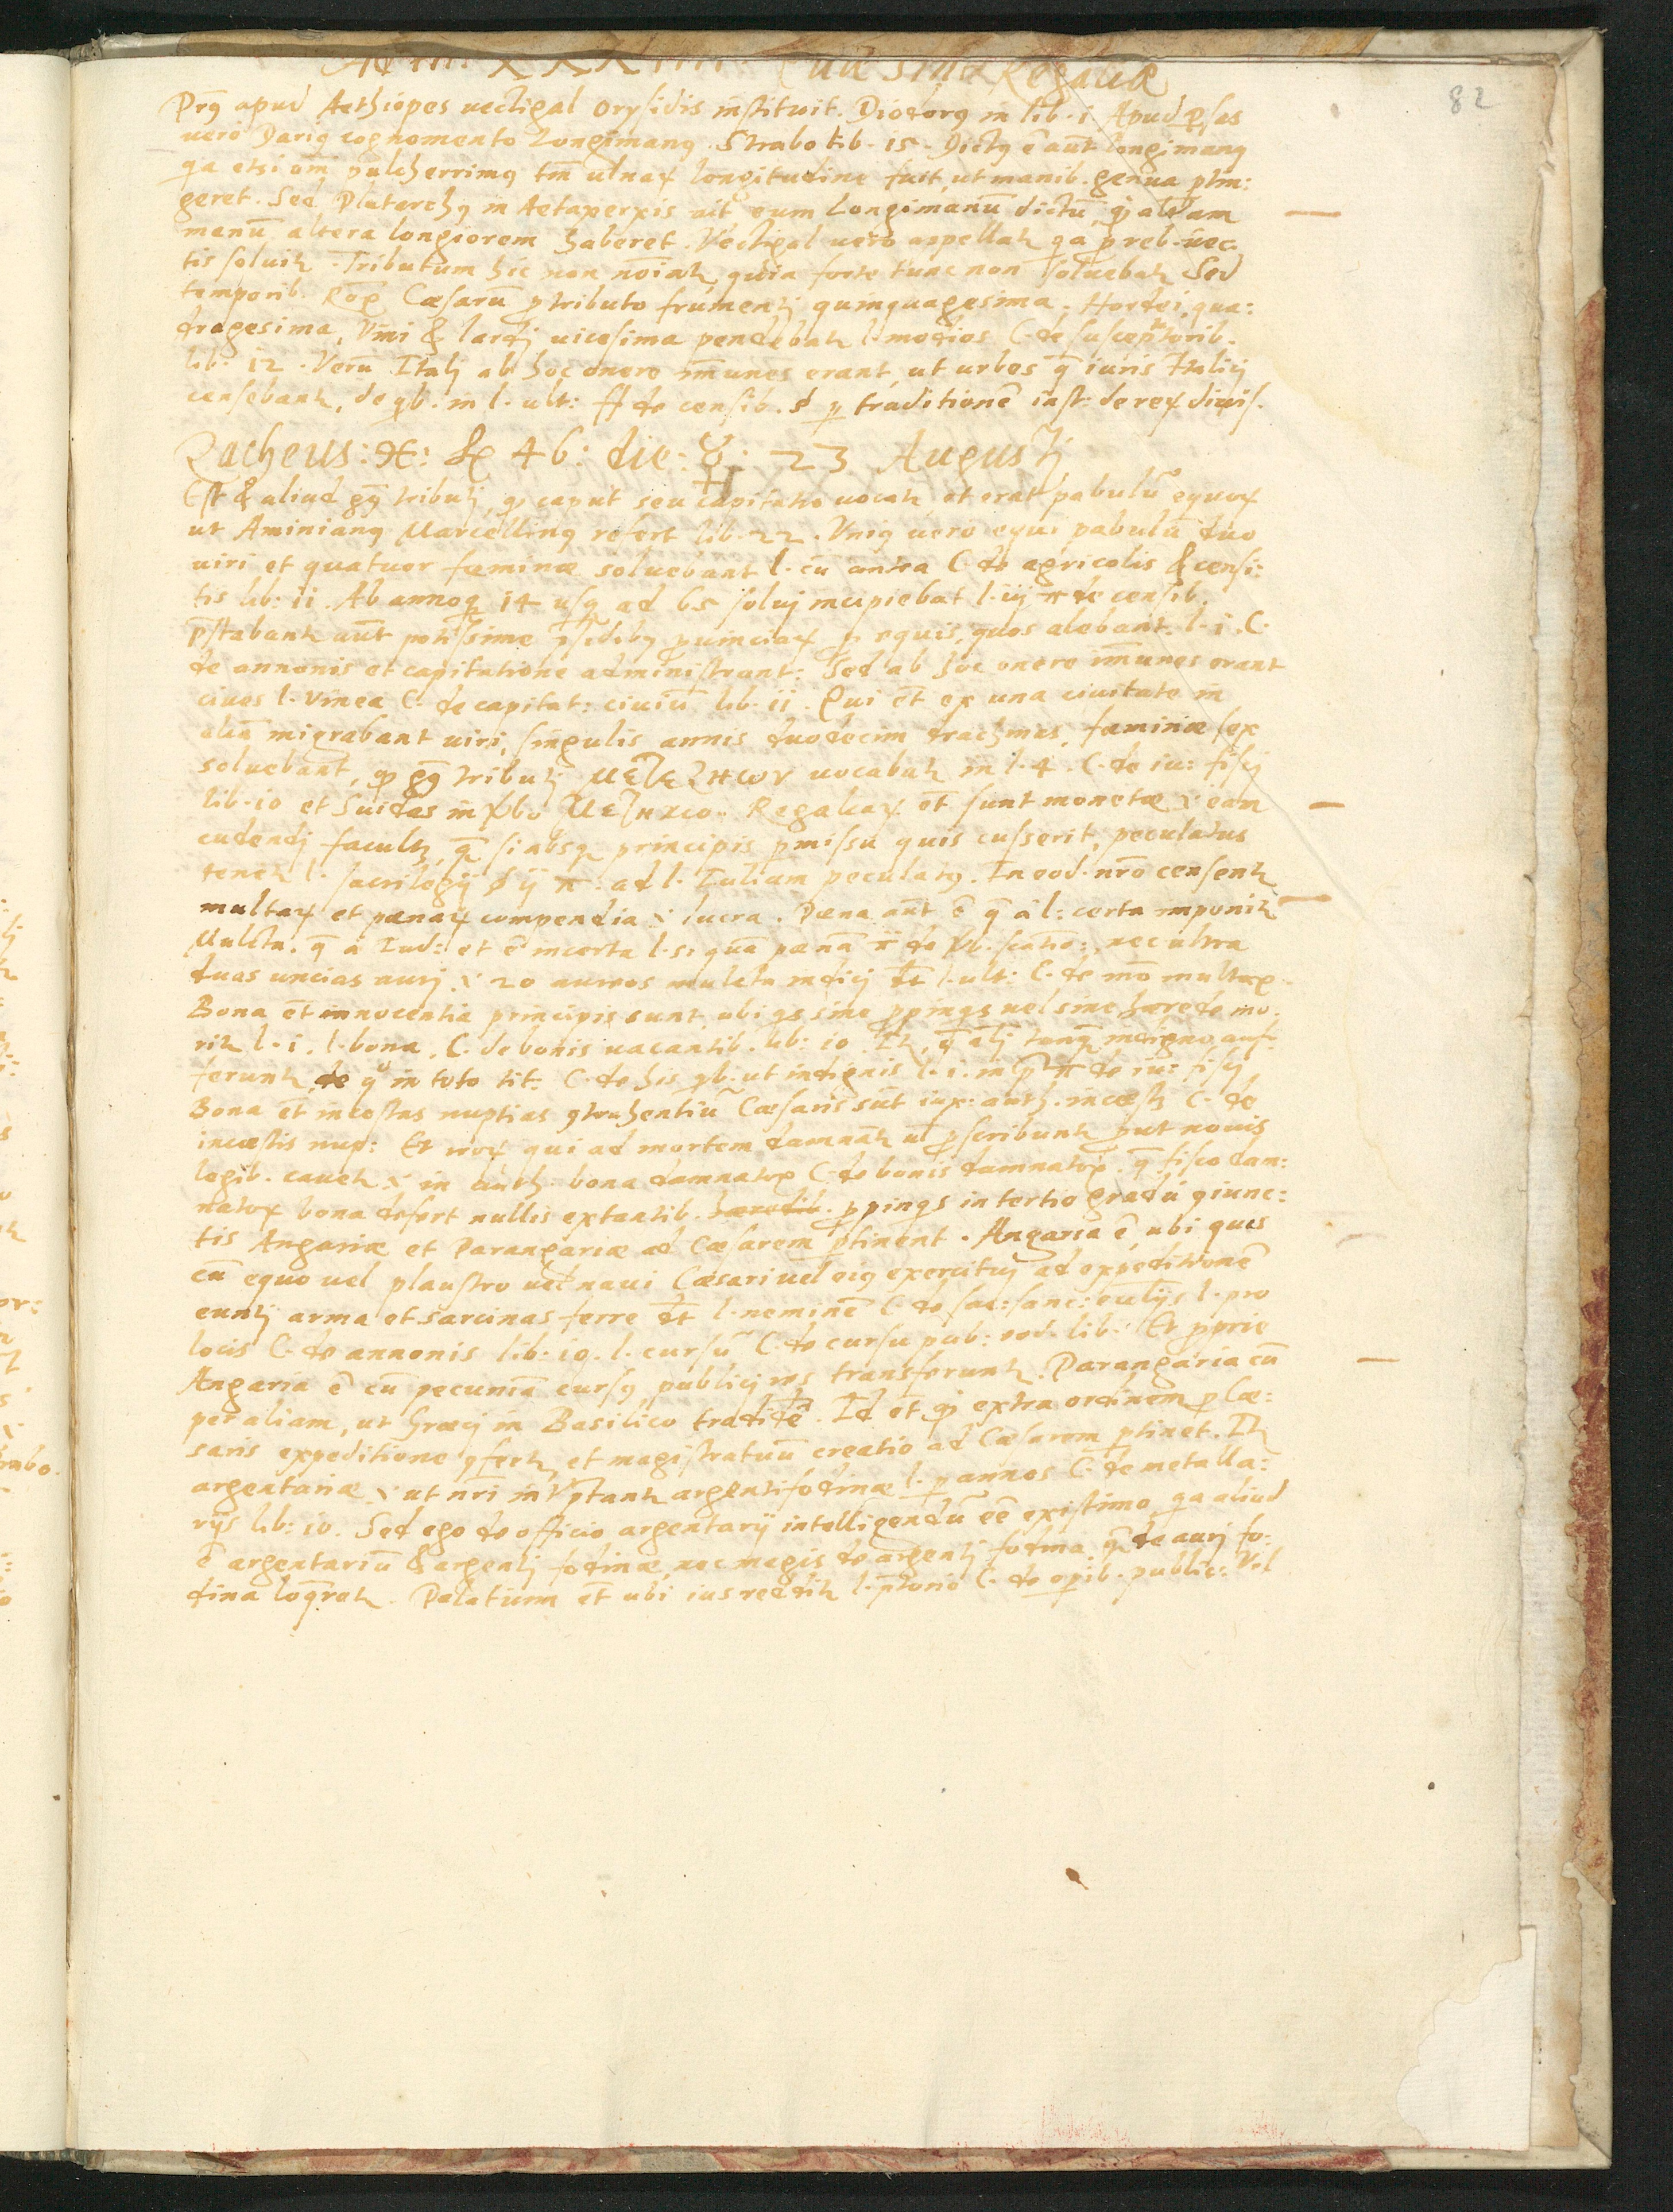 Ad tit. XXXIIII. Quæ sint Regaliæ
82
apud Aethiopes uectigal orysidis instituit. Diodorꝯ in lib. i Apud p̱sas
uero Dariꝯ cognomento Longimanꝯ. Strabo lib. 15. Dictꝯ ē aūt longimanꝯ
qa etsi oīm pulcherrimꝯ tm̄ ulnaꝝ longitudine fuit, ut manib. genua ptin:
geret. Sed Plutarchꝯ in Aetaxerxis ait eum Longimanū dictū, qd alteram
manū altera longiorem haberet. Vectigal uero appellat̃ qa p reb. uec-
tis soluit̃. Tributum hic non noīat̃, quia forte tunc non soluebat̃ Sed
temporib. Roṃ Cæsarū p tributo frumentj quinquagesima, Hordei, qua:
dragesima, Vini & lardj uicesima pendebat̃ l. modios C. de susceptorib.
lib. 12. Verū Italj ab hoc onere im̄unes erant, ut urbes q̄ iuris Italicj
censebant̃, de qb. in l. ult: ff de censib. § p traditionē inst: de reꝝ diuis.
Zacheus: die: 23 Augustj
Est & aliud tributj, qd caput seu capitatio uocat̃, et erat pabulū equoꝝ
ut Aminianꝯ Marcellinꝯ refert lib. 22. Vniꝯ uero equi pabulū duo
uiri et quatuor fæminæ soluebant l. cū antea C. de agricolis & censi:
tis lib: ii. Ab annoq̨ 14 usq̨ ad 65 soluj incipiebat l. iij π de censib.
p̄stabant̃ aūt potissime p̄sidibꝯ puinciaꝝ p equis, quos alebant. l. i. C.
de annonis et capitatione administrant: Sed ab hoc onere im̄unes erant
ciues l. vnica C. de capitat: ciuiū lib. ii. Qui ēt ex una ciuitate in
aliā migrabant uiri, singulis annis duodecim drachmas, fæminæ sex
soluebant, qd tributj uocabat̃ in l. 4. C. de iu: fiscj
lib. io et Suidas in Regaliaꝝ ēt sunt monetæ eam
cudendj facult̃, q̄ si absq̨ principis pmissu quis cusserit, peculatus
tenet̃ l. sacrilegij § ij π. ad l. Iuliam peculatꝯ. In eod. nr̄o censent̃
multaꝝ et pænaꝝ compendia lucra. Pæna aūt ē q̄ à l: certa imponit̃
Mulcta. q̄ à Iud: et ē incerta l. si quā pænā π de nec ultra
duas uncias aurj. 20 aureos mulcta indicj l. ult: C. de mō multaꝝ
Bona ēt innocentia principis sunt, ubi qs sine ppinqs uel sine hærede mo.
rit̃ l. i. l. bona. C. de bonis uacantib. lib: io. It̃, q̄ alj tanq̄ indigno auf-
ferunt̃ de quo in toto tit. C. de his qb. ut indignis l. i. in pr̄ π de iu: fiscj
Bona ēt incestas nuptias ꝯtrahentiū Cæsaris sūt iux: auth. incestj C. de
incæstis nup: Et eoꝝ qui ad mortem damnat̃ ul pscribunt̃ put nouis
legib. cauet̃ in auth. bona damnatoꝝ C. de bonis damnatoꝝ. q̄ fisco dam:
natoꝝ bona defert nullis extantib. hæredib. ppinqs in tertio gradu ꝯiunc:
tis Angariæ et Parangariæ ad Cæsarem ptinent. Angaria ē, ubi quis
cū equo uel plaustro uel naui Cæsari uel eiꝯ exercituj ad expeditionē
euntj arma et sarcinas ferre l. neminē C. de sac: sanc: eccl̄ijs l. pro
locis C. de annonis lib: io. l. cursū C. de cursu pub: eod. lib: Et pprie
Angaria ē cū pecuniā cursꝯ publicj res transferunt̃. Parangaria cū
per aliam, ut Græcj in Basilico tradidē. Id ēt qd extra ordinem p Cæ:
saris expeditione ꝯfert̃, et magistratuū creatio ad Cæsarem ptinet. It̃
argentariæ ut nr̄i intptant̃ argentifodinæ l. p annos C. de metalla:
rijs lib: io. Sed ego de officio argentarij intelligendū eē existimo qa aliud
ē argentariū & argentj fodinæ, nec magis de argentj fodina q̄ de aurj fo:
dina loq̄ret̃. Palatium ēt ubi ius reddit̃ l. p̄torio C. de opib. public: Vel